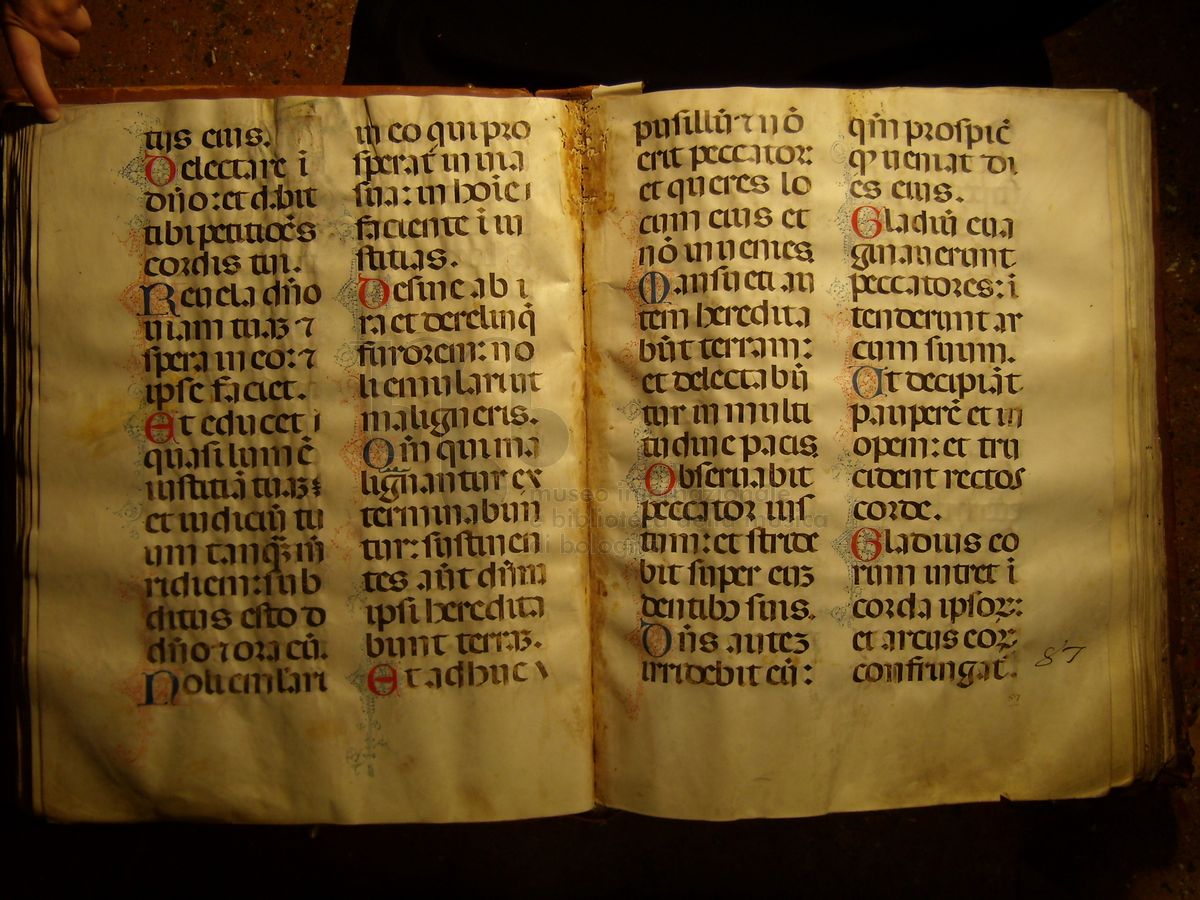 tijs eius.
Delectare ī
dn̄o: et dabit
tibi petitiōēs
cordis tui.
Reuela dn̄o
uiam tuaʒ ⁊
spera in eo: ⁊
ipse faciet.
Et educet i
quasi lumē
iustitiā tuaʒ:
et iudiciū tu
um tanq̄ȝ m̄
ridiem: sub
ditus esto d
dn̄o ⁊ ora eū.
Noli emulari
in eo qui pro
sperat̄ in uia
sua: in hoīe i
faciente ī iu
stitias.
Desine ab i
ra et derelinq̄
furorem: no
li emulari ut
maligneris.
Qm̄ qui ma
lignantur ex
terminabūn
tur: sustinen
tes aūt dn̄m
ipsi heredita
bunt terraʒ.
Et adhuc
pusillū ⁊ nō
erit peccator:
et queres lo
cum eius et
nō inuenies.
Mansueti au
tem heredita
būt terram:
et delectabū
tur in multi
tudine pacis.
Obseruabit
peccator ius
tum: et stride
bit super euʒ
dentibꝯ suis.
Dn̄s auteʒ
irridebit eū:
qm̄ prospic̄
ꝙ ueniat di
es eius.
Gladiū eua
ginauerunt
peccatores: ī
tenderunt ar
cum suum.
Ut decipiāt
pauperē et in
opem: et tru
cident rectos
corde.
Gladius eo
rum intret ī
corda ipsoꝝ:
et arcus eoꝝ
confringat̄.
87
museo internazionale
e biblioteca della musica
di bologna